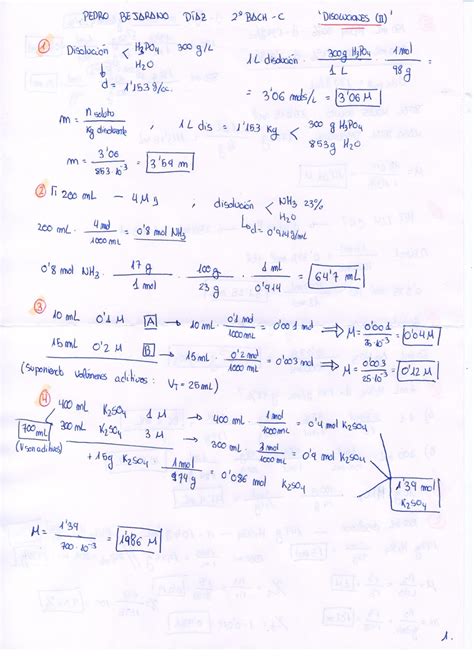 PEDRO BEJARANO DÍAZ - 2º BACH-C "DISOLUCIONES (II)"
① Disolución < H₃PO₄ 300 g/L
H₂O
d = 1'153 g/cc.
1 L disolución · 300 g H₃PO₄ / 1 L · 1 mol / 98 g =
= 3'06 mols/L = 3'06 M
m = n soluto / Kg disolvente , 1 L dis = 1'153 Kg < 300 g H₃PO₄
853 g H₂O
m = 3'06 / 853·10⁻³ = 3'59 m
② 200 mL - 4 M ; disolución < NH₃ 23%
H₂O
d = 0'914 g/mL
200 mL · 4 mol / 1000 mL = 0'8 mol NH₃
0'8 mol NH₃ · 17 g / 1 mol · 100 g / 23 g · 1 mL / 0'914 = 64'7 mL
③ 10 mL 0'1 M A → 10 mL · 0'1 mol / 1000 mL = 0'001 mol ⇒ M = 0'001 / 25·10⁻³ = 0'04 M
15 mL 0'2 M B → 15 mL · 0'2 mol / 1000 mL = 0'003 mol ⇒ M = 0'003 / 25·10⁻³ = 0'12 M
(Suponiendo volúmenes aditivos : V_T = 25 mL)
④ 400 mL K₂SO₄ 1 M → 400 mL · 1 mol / 1000 mL = 0'4 mol K₂SO₄
700 mL 300 mL K₂SO₄ 3 M → 300 mL · 3 mol / 1000 mL = 0'9 mol K₂SO₄
(V son aditivos)
+ 15 g K₂SO₄ · 1 mol / 174 g = 0'086 mol K₂SO₄
1'39 mol K₂SO₄
M = 1'39 / 700·10⁻³ = 1'986 M
1.